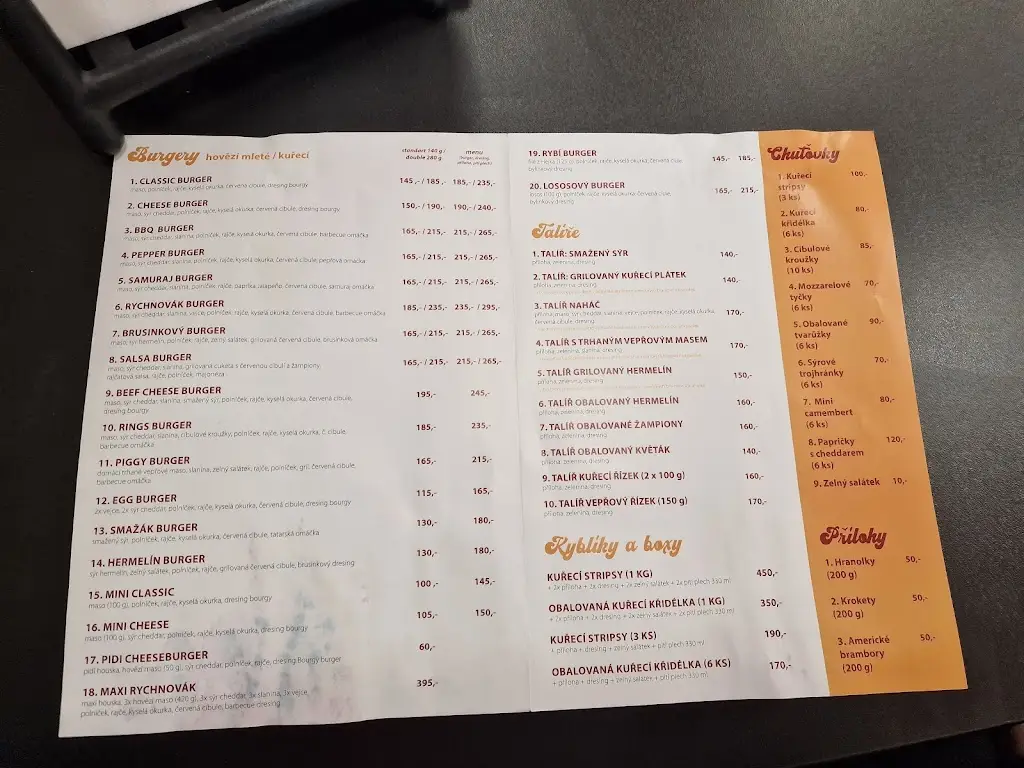 Burgery hovězí mleté / kuřecí
standart 140 g / double 280 g
menu
1. CLASSIC BURGER 145,- / 185,- 185,- / 235,-
maso, polníček, rajče, kyselá okurka, červená cibule, dresing bourgy
2. CHEESE BURGER 150,- / 190,- 190,- / 240,-
maso, sýr cheddar, polníček, rajče, kyselá okurka, červená cibule, dresing bourgy
3. BBQ BURGER 165,- / 215,- 215,- / 265,-
maso, sýr cheddar, slanina, polníček, rajče, kyselá okurka, červená cibule, barbecue omáčka
4. PEPPER BURGER 165,- / 215,- 215,- / 265,-
maso, sýr cheddar, slanina, polníček, rajče, kyselá okurka, červená cibule, pepřová omáčka
5. SAMURAJ BURGER 165,- / 215,- 215,- / 265,-
maso, sýr cheddar, slanina, polníček, rajče, paprika, jalapeňo, červená cibule, samuraj omáčka
6. RYCHNOVÁK BURGER 185,- / 235,- 235,- / 295,-
maso, sýr cheddar, slanina, vejce, polníček, rajče, kyselá okurka, červená cibule, barbecue omáčka
7. BRUSINKOVÝ BURGER 165,- / 215,- 215,- / 265,-
maso, sýr hermelín, polníček, rajče, zelný salátek, grilovaná červená cibule, brusinková omáčka
8. SALSA BURGER 165,- / 215,- 215,- / 265,-
maso, sýr cheddar, slanina, grilovaná cuketa s červenou cibulí a žampiony
rajčatová salsa, rajče, polníček, majonéza
9. BEEF CHEESE BURGER 195,- 245,-
maso, sýr cheddar, slanina, smažený sýr, polníček, rajče, kyselá okurka, červená cibule,
dresing bourgy
10. RINGS BURGER 185,- 235,-
maso, sýr cheddar, slanina, cibulové kroužky, polníček, rajče, kyselá okurka, č. cibule,
barbecue omáčka
11. PIGGY BURGER 165,- 215,-
domácí trhané vepřové maso, slanina, zelný salátek, rajče, polníček, gril. červená cibule,
barbecue omáčka
12. EGG BURGER 115,- 165,-
2x vejce, 2x sýr cheddar, polníček, rajče, kyselá okurka, červená cibule, dresing bourgy
13. SMAŽÁK BURGER 130,- 180,-
smažený sýr, polníček, rajče, kyselá okurka, červená cibule, tatarská omáčka
14. HERMELÍN BURGER 130,- 180,-
sýr hermelín, zelný salátek, polníček, rajče, grilovaná červená cibule, brusinkový dresing
15. MINI CLASSIC 100,- 145,-
maso (100 g), polníček, rajče, kyselá okurka, dresing bourgy
16. MINI CHEESE 105,- 150,-
maso (100 g), sýr cheddar, polníček, rajče, kyselá okurka, dresing bourgy
17. PIDI CHEESEBURGER 60,-
pidi houska, hovězí maso (50 g), sýr cheddar, polníček, rajče, dresing Bourgy burger
18. MAXI RYCHNOVÁK 395,-
maxi houska, 3x hovězí maso (420 g), 3x sýr cheddar, 3x slanina, 3x vejce,
polníček, rajče, kyselá okurka, červená cibule, barbecue dresing
19. RYBÍ BURGER 145,- 185,-
polníček, rajče, kyselá okurka, červená cibule
bylinkový dresing
20. LOSOSOVÝ BURGER 165,- 215,-
polníček, rajče, kyselá okurka, červená cibule,
bylinkový dresing
Talíře
1. TALÍŘ: SMAŽENÝ SÝR 140,-
příloha, zelenina, dresing
2. TALÍŘ: GRILOVANÝ KUŘECÍ PLÁTEK 140,-
příloha, zelenina, dresing
3. TALÍŘ NAHÁČ 170,-
příloha, maso, sýr cheddar, slanina, vejce, polníček, rajče, kyselá okurka,
červená cibule, dresing
4. TALÍŘ S TRHANÝM VEPŘOVÝM MASEM 170,-
příloha, zelenina, slanina, dresing
5. TALÍŘ GRILOVANÝ HERMELÍN 150,-
příloha, zelenina, dresing
6. TALÍŘ OBALOVANÝ HERMELÍN 160,-
příloha, zelenina, dresing
7. TALÍŘ OBALOVANÉ ŽAMPIONY 160,-
příloha, zelenina, dresing
8. TALÍŘ OBALOVANÝ KVĚTÁK 140,-
příloha, zelenina, dresing
9. TALÍŘ KUŘECÍ ŘÍZEK (2 x 100 g) 160,-
příloha, zelenina, dresing
10. TALÍŘ VEPŘOVÝ ŘÍZEK (150 g) 170,-
příloha, zelenina, dresing
Kyblíky a boxy
KUŘECÍ STRIPSY (1 KG) 450,-
+ 2x příloha + 2x dresing + 2x zelný salátek + 2x pití plech 330 ml
OBALOVANÁ KUŘECÍ KŘIDÉLKA (1 KG) 350,-
+ 2x příloha + 2x dresing + 2x zelný salátek + 2x pití plech 330 ml
KUŘECÍ STRIPSY (3 KS) 190,-
+ příloha + dresing + zelný salátek + pití plech 330 ml
OBALOVANÁ KUŘECÍ KŘIDÉLKA (6 KS) 170,-
+ příloha + dresing + zelný salátek + pití plech 330 ml
Chuťovky
1. Kuřecí 100,-
stripsy
(3 ks)
2. Kuřecí 80,-
křidélka
(6 ks)
3. Cibulové 85,-
kroužky
(10 ks)
4. Mozzarelové 70,-
tyčky
(6 ks)
5. Obalované 90,-
tvarůžky
(6 ks)
6. Sýrové 70,-
trojhránky
(6 ks)
7. Mini 80,-
camembert
(6 ks)
8. Papričky 120,-
s cheddarem
(6 ks)
9. Zelný salátek 10,-
Přílohy
1. Hranolky 50,-
(200 g)
2. Krokety 50,-
(200 g)
3. Americké 50,-
brambory
(200 g)